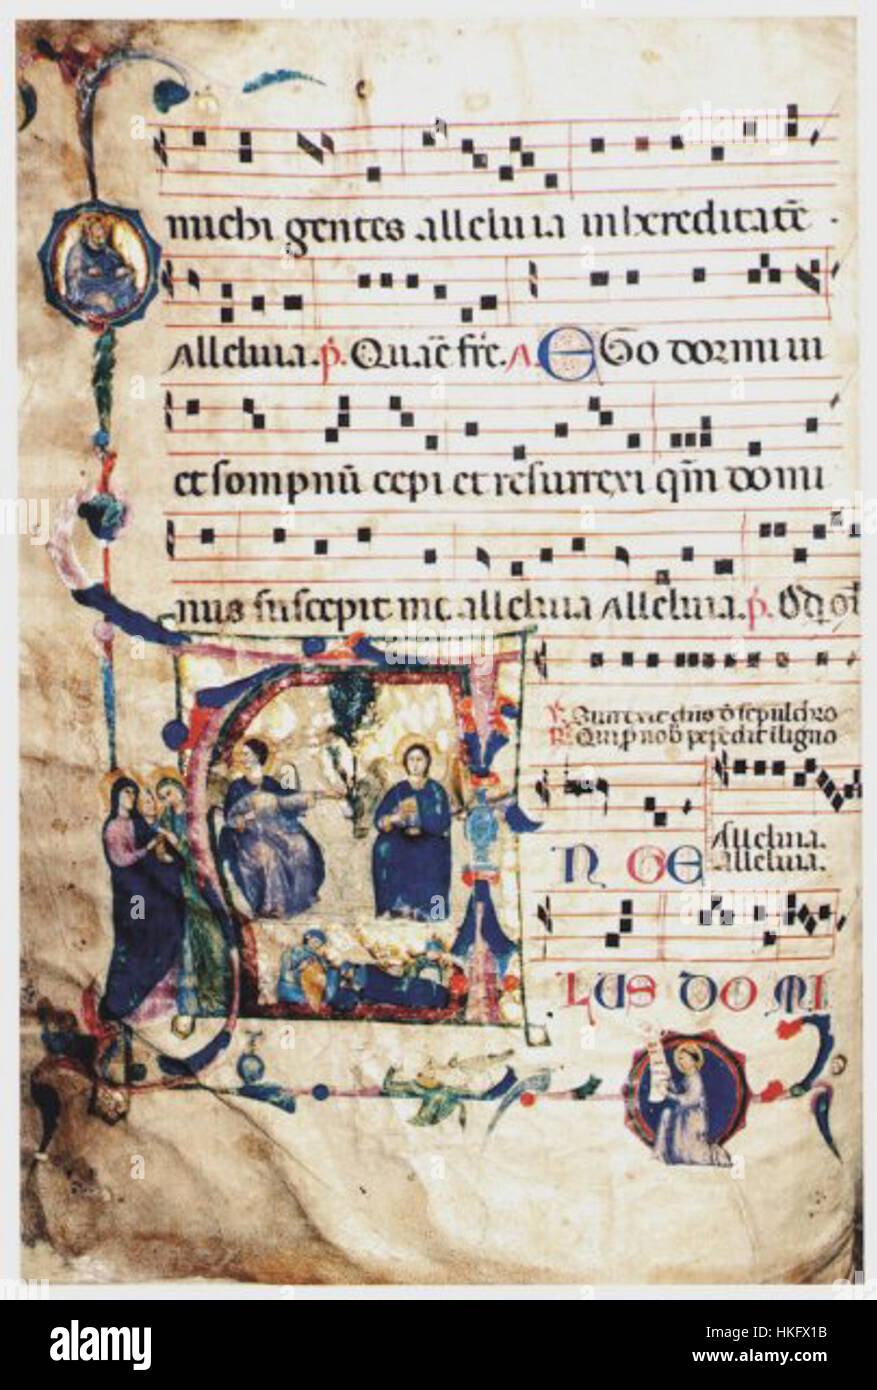 michi gentes alleluia in hereditatē
Alleluia. p̄. Quāe frē. A EGo dormiui
et sompnū cepi et resurrexi qm̄ domi
nus suscepit me alleluia Alleluia. p̄.
℣. Surrexit dn̄s d̄ sepulchro
℟. Qui p nob pepēdit i ligno
N GE
Alleluia.
alleluia.
LUS DO MI
alamy
Image ID: HKFX1B
www.alamy.com